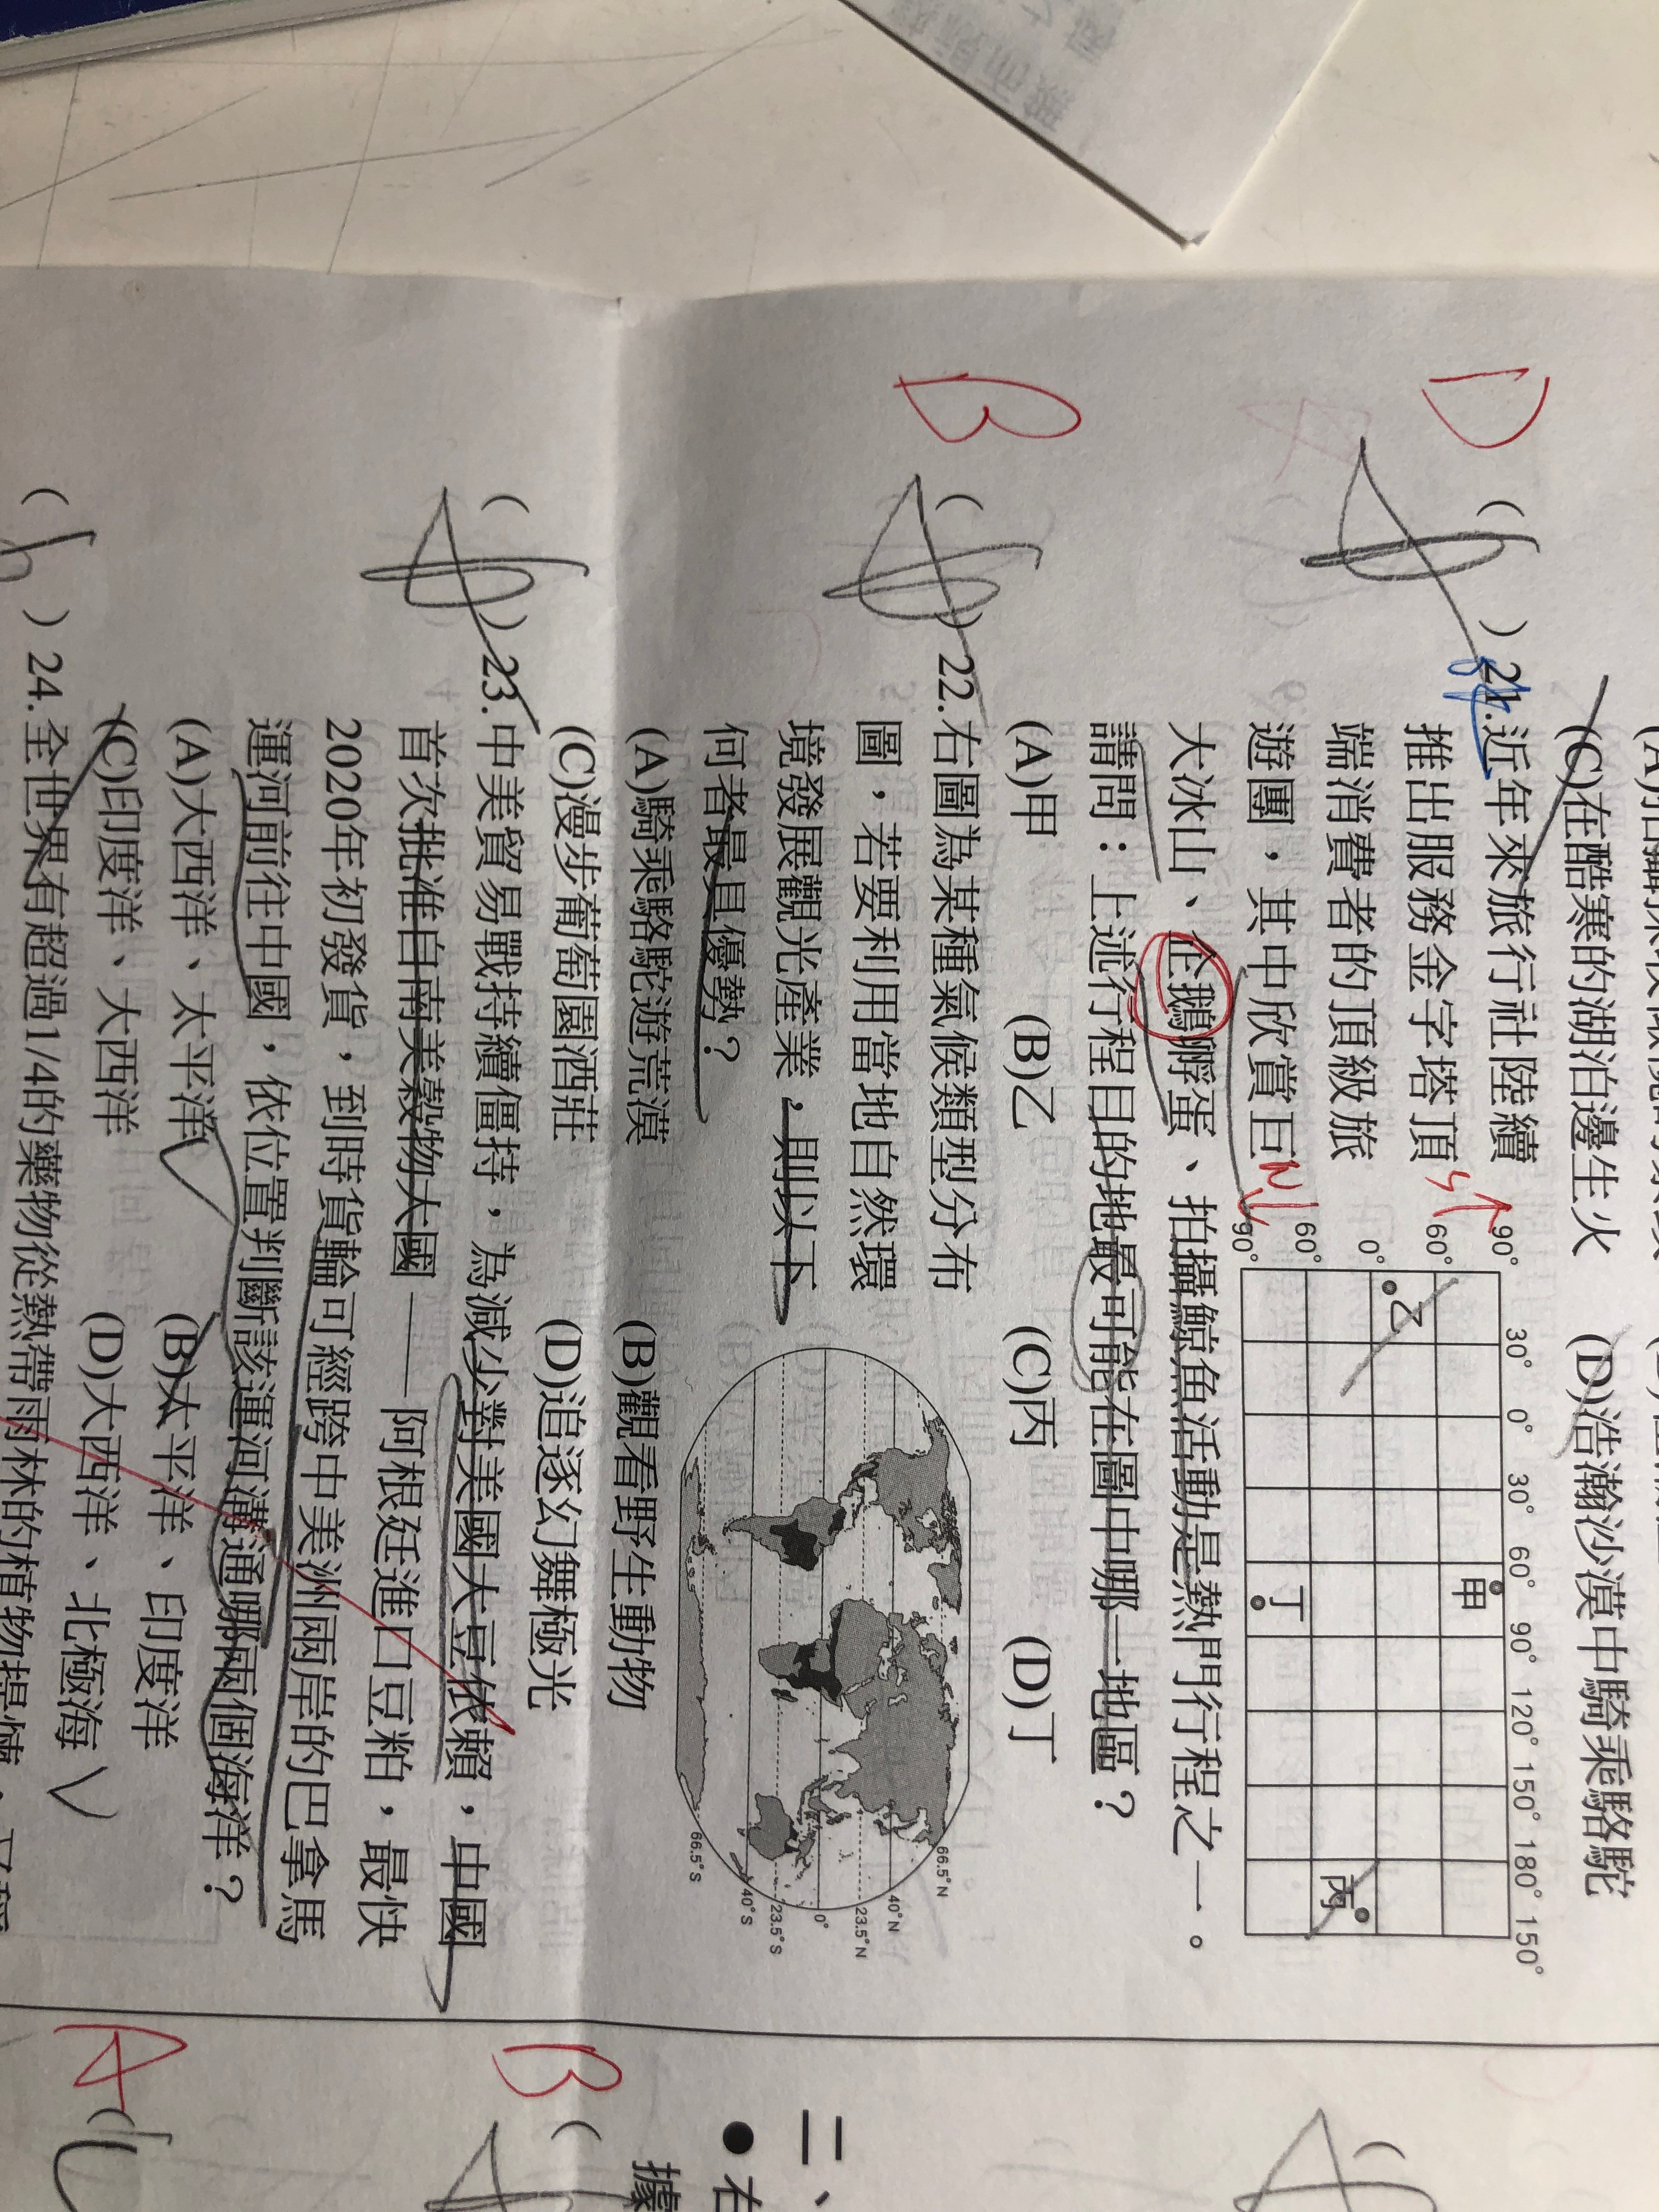 (C)在酷寒的湖泊邊生火 (D)浩瀚沙漠中騎乘駱駝
D
( )21.近年來旅行社陸續
推出服務金字塔頂
端消費者的頂級旅
遊團，其中欣賞巨
大冰山、企鵝孵蛋、拍攝鯨魚活動是熱門行程之一。
請問：上述行程目的地最可能在圖中哪一地區？
(A)甲 (B)乙 (C)丙 (D)丁
30° 0° 30° 60° 90° 120° 150° 180° 150°
90°
60°
0°
60°
90°
甲
乙
丙
丁
S
N
B
( )22.右圖為某種氣候類型分布
圖，若要利用當地自然環
境發展觀光產業，則以下
何者最具優勢？
(A)騎乘駱駝遊荒漠 (B)觀看野生動物
(C)漫步葡萄園酒莊 (D)追逐幻舞極光
66.5°N
40°N
23.5°N
0°
23.5°S
40°S
66.5°S
( )23.中美貿易戰持續僵持，為減少對美國大豆依賴，中國
首次批准自南美穀物大國——阿根廷進口豆粕，最快
2020年初發貨，到時貨輪可經跨中美洲兩岸的巴拿馬
運河前往中國，依位置判斷該運河溝通哪兩個海洋？
(A)大西洋、太平洋 (B)太平洋、印度洋
(C)印度洋、大西洋 (D)大西洋、北極海
( )24.全世界有超過1/4的藥物從熱帶雨林的植物提煉，
二、
●右
據
B
A